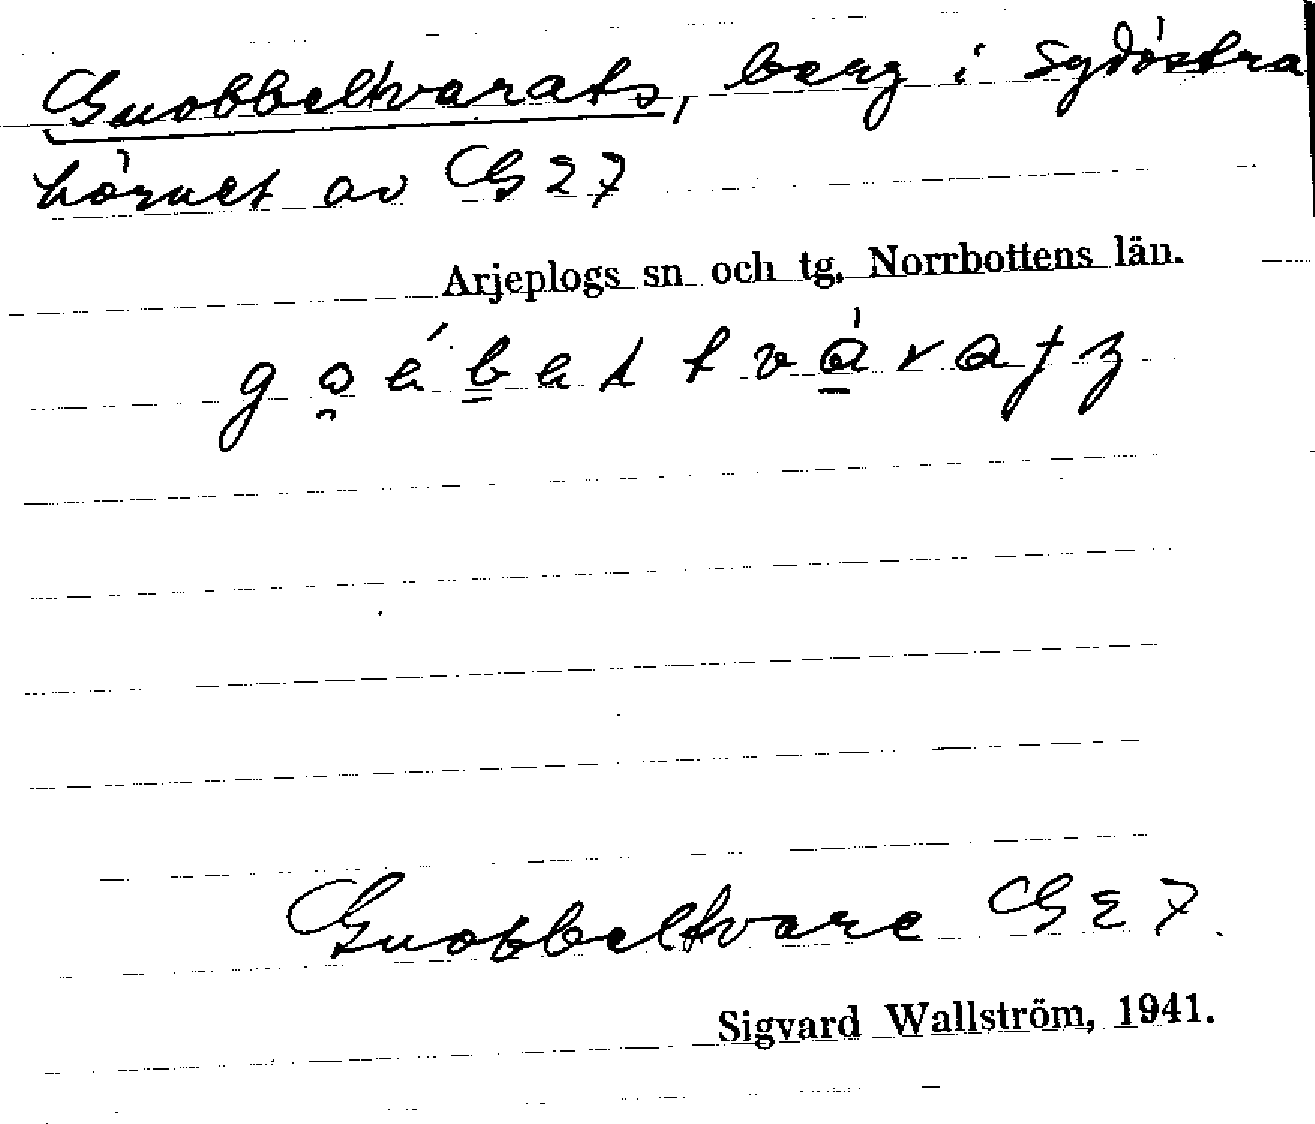 Guobbeltvarats, berg i sydöstra
hörnet av G 27
Arjeplogs sn och tg. Norrbottens län.
Guobbeltvare G 27.
Sigvard Wallström, 1941.